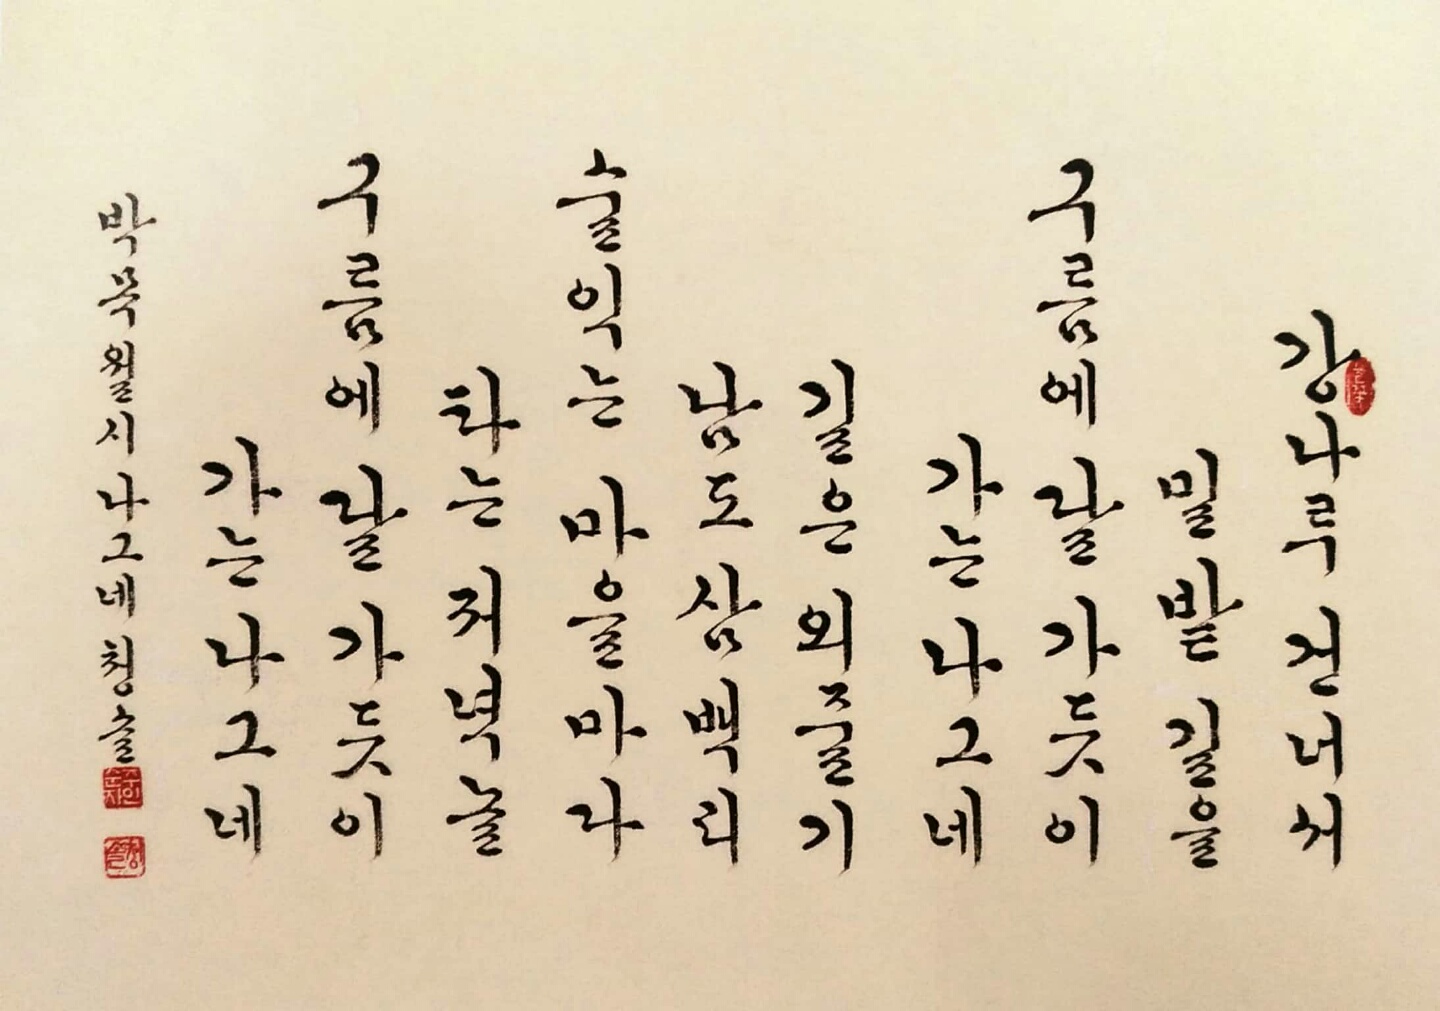 강나루 건너서
밀밭 길을
구름에 달 가듯이
가는 나그네
길은 외줄기
남도 삼백리
술익는 마을마다
타는 저녁놀
구름에 달 가듯이
가는 나그네
박목월시 나그네 청솔